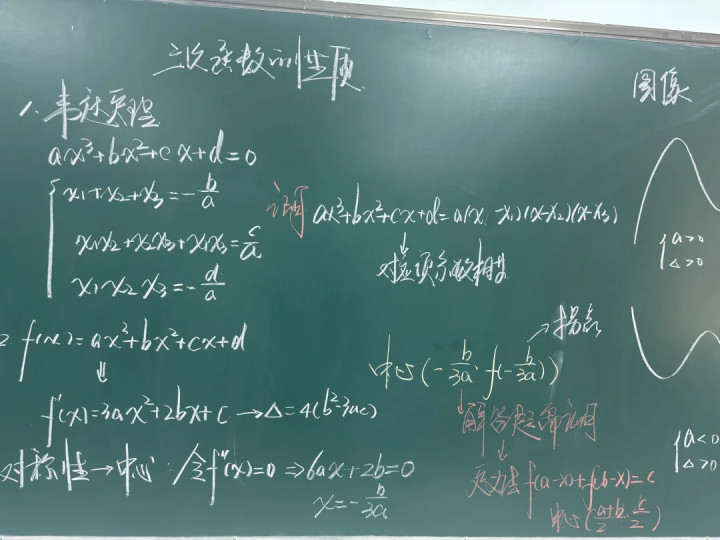 三次函数的性质
图像
1、韦达定理
ax³+bx²+cx+d=0
x₁+x₂+x₃=-b/a
x₁x₂+x₂x₃+x₁x₃=c/a
x₁x₂x₃=-d/a
证明 ax³+bx²+cx+d=a(x-x₁)(x-x₂)(x-x₃)
↓
对应项系数相等
2 f(x)=ax³+bx²+cx+d
⇓
f'(x)=3ax²+2bx+c → Δ=4(b²-3ac)
对称性→中心:令f''(x)=0 ⇒6ax+2b=0
x=-b/3a
→拐点
中心(-b/3a, f(-b/3a))
↓
解答题需证明
↓
定义法 f(a-x)+f(b-x)=c
中心(a+b/2, c/2)
a>0
Δ>0
a<0
Δ>0